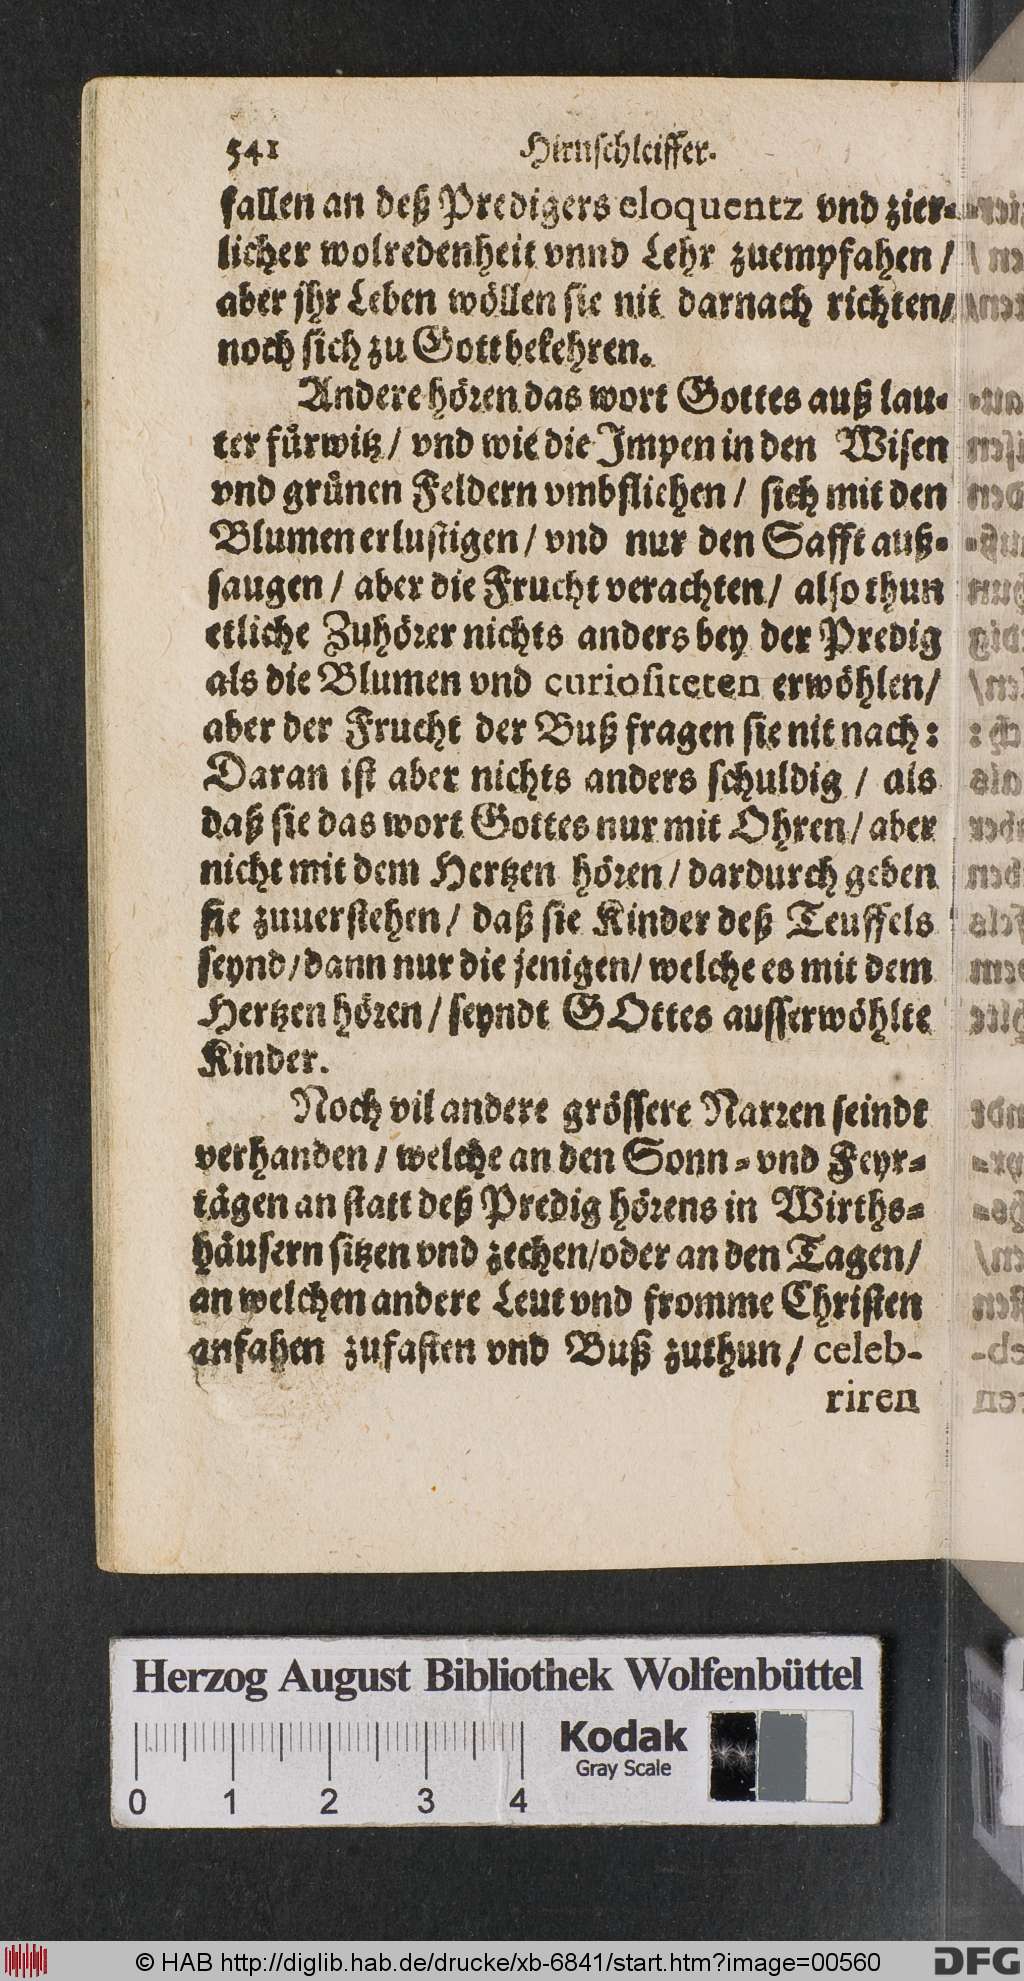 541 Hirnschleiffer.
fallen an deß Predigers eloquentz vnd zier-
licher wolredenheit vnnd Lehr zuempfahen /
aber jhr Leben wöllen sie nit darnach richten/
noch sich zu Gott bekehren.
Andere hören das wort Gottes auß lau-
ter fůrwitz / vnd wie die Impen in den Wisen
vnd grůnen Feldern vmbfliehen / sich mit den
Blumen erlustigen / vnd nur den Safft auß-
saugen / aber die Frucht verachten / also thun
etliche Zuhörer nichts anders bey der Predig
als die Blumen vnd curiositeten erwöhlen/
aber der Frucht der Buß fragen sie nit nach:
Daran ist aber nichts anders schuldig / als
daß sie das wort Gottes nur mit Ohren / aber
nicht mit dem Hertzen hören / dardurch geben
sie zuuerstehen / daß sie Kinder deß Teuffels
seynd / dann nur die jenigen / welche es mit dem
Hertzen hören / seyndt GOttes ausserwöhlte
Kinder.
Noch vil andere grössere Narren seindt
verhanden / welche an den Sonn- vnd Feyr-
tägen an statt deß Predig hörens in Wirths-
häusern sitzen vnd zechen/oder an den Tagen/
an welchen andere Leut vnd fromme Christen
anfahen zufasten vnd Buß zuthun / celeb-
riren
Herzog August Bibliothek Wolfenbüttel
Kodak
Gray Scale
0 1 2 3 4
© HAB http://diglib.hab.de/drucke/xb-6841/start.htm?image=00560
DFG